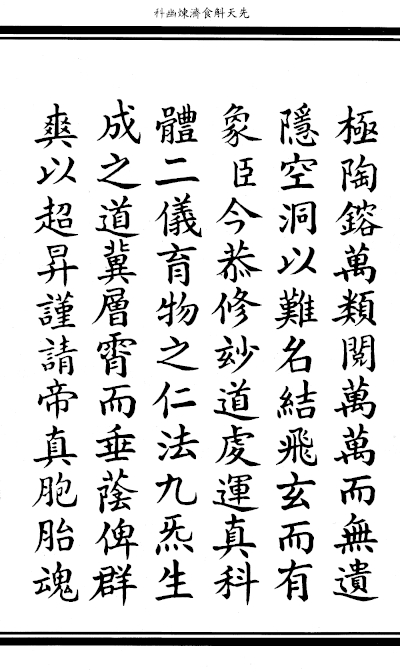 先天斛食濟煉幽科
極陶鎔萬類閱萬萬而無遺
隱空洞以難名結飛玄而有
象臣今恭修玅道虔運真科
體二儀育物之仁法九炁生
成之道冀層霄而垂蔭俾群
爽以超昇謹請帝真胞胎魂